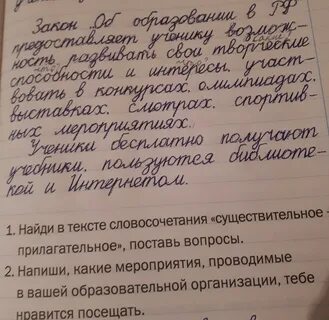 Закон „Об образовании в РФ
предоставляет ученику возмож-
ность развивать свои творческие
способности и интересы, участ-
вовать в конкурсах, олимпиадах,
выставках, смотрах, спортив-
ных мероприятиях.
Ученики бесплатно получают
учебники, пользуются библиоте-
кой и Интернетом.
1. Найди в тексте словосочетания «существительное +
прилагательное», поставь вопросы.
2. Напиши, какие мероприятия, проводимые
в вашей образовательной организации, тебе
нравится посещать.